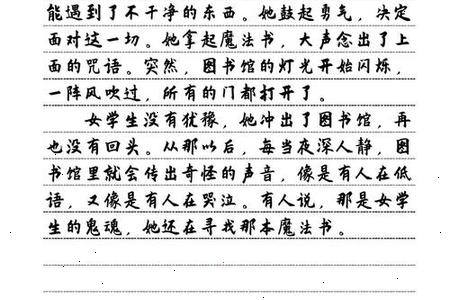 能遇到了不干净的东西。她鼓起勇气，决定
面对这一切。她拿起魔法书，大声念出了上
面的咒语。突然，图书馆的灯光开始闪烁，
一阵风吹过，所有的门都打开了。
女学生没有犹豫，她冲出了图书馆，再
也没有回头。从那以后，每当夜深人静，图
书馆里就会传出奇怪的声音，像是有人在低
语，又像是有人在哭泣。有人说，那是女学
生的鬼魂，她还在寻找那本魔法书。